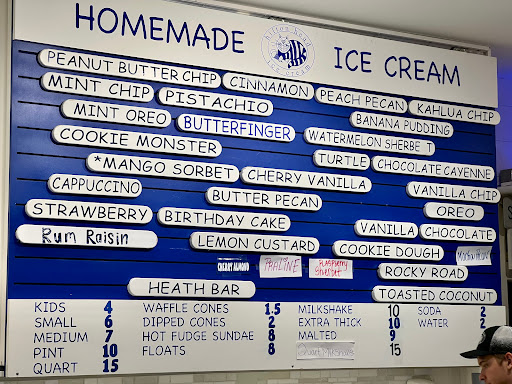 HOMEMADE ICE CREAM
hilton head
ice cream
PEANUT BUTTER CHIP
CINNAMON
PEACH PECAN
KAHLUA CHIP
MINT CHIP
PISTACHIO
BANANA PUDDING
MINT OREO
BUTTERFINGER
WATERMELON SHERBE T
COOKIE MONSTER
TURTLE
CHOCOLATE CAYENNE
*MANGO SORBET
CHERRY VANILLA
VANILLA CHIP
CAPPUCCINO
BUTTER PECAN
OREO
STRAWBERRY
BIRTHDAY CAKE
VANILLA
CHOCOLATE
Rum Raisin
LEMON CUSTARD
COOKIE DOUGH
CHERRY ALMOND
PRALINE
RASPBERRY
SHERBET
ROCKY ROAD
HEATH BAR
TOASTED COCONUT
KIDS 4 WAFFLE CONES 1.5 MILKSHAKE 10 SODA 2
SMALL 6 DIPPED CONES 2 EXTRA THICK 10 WATER 2
MEDIUM 7 HOT FUDGE SUNDAE 8 MALTED 9
PINT 10 FLOATS 8 15
QUART 15